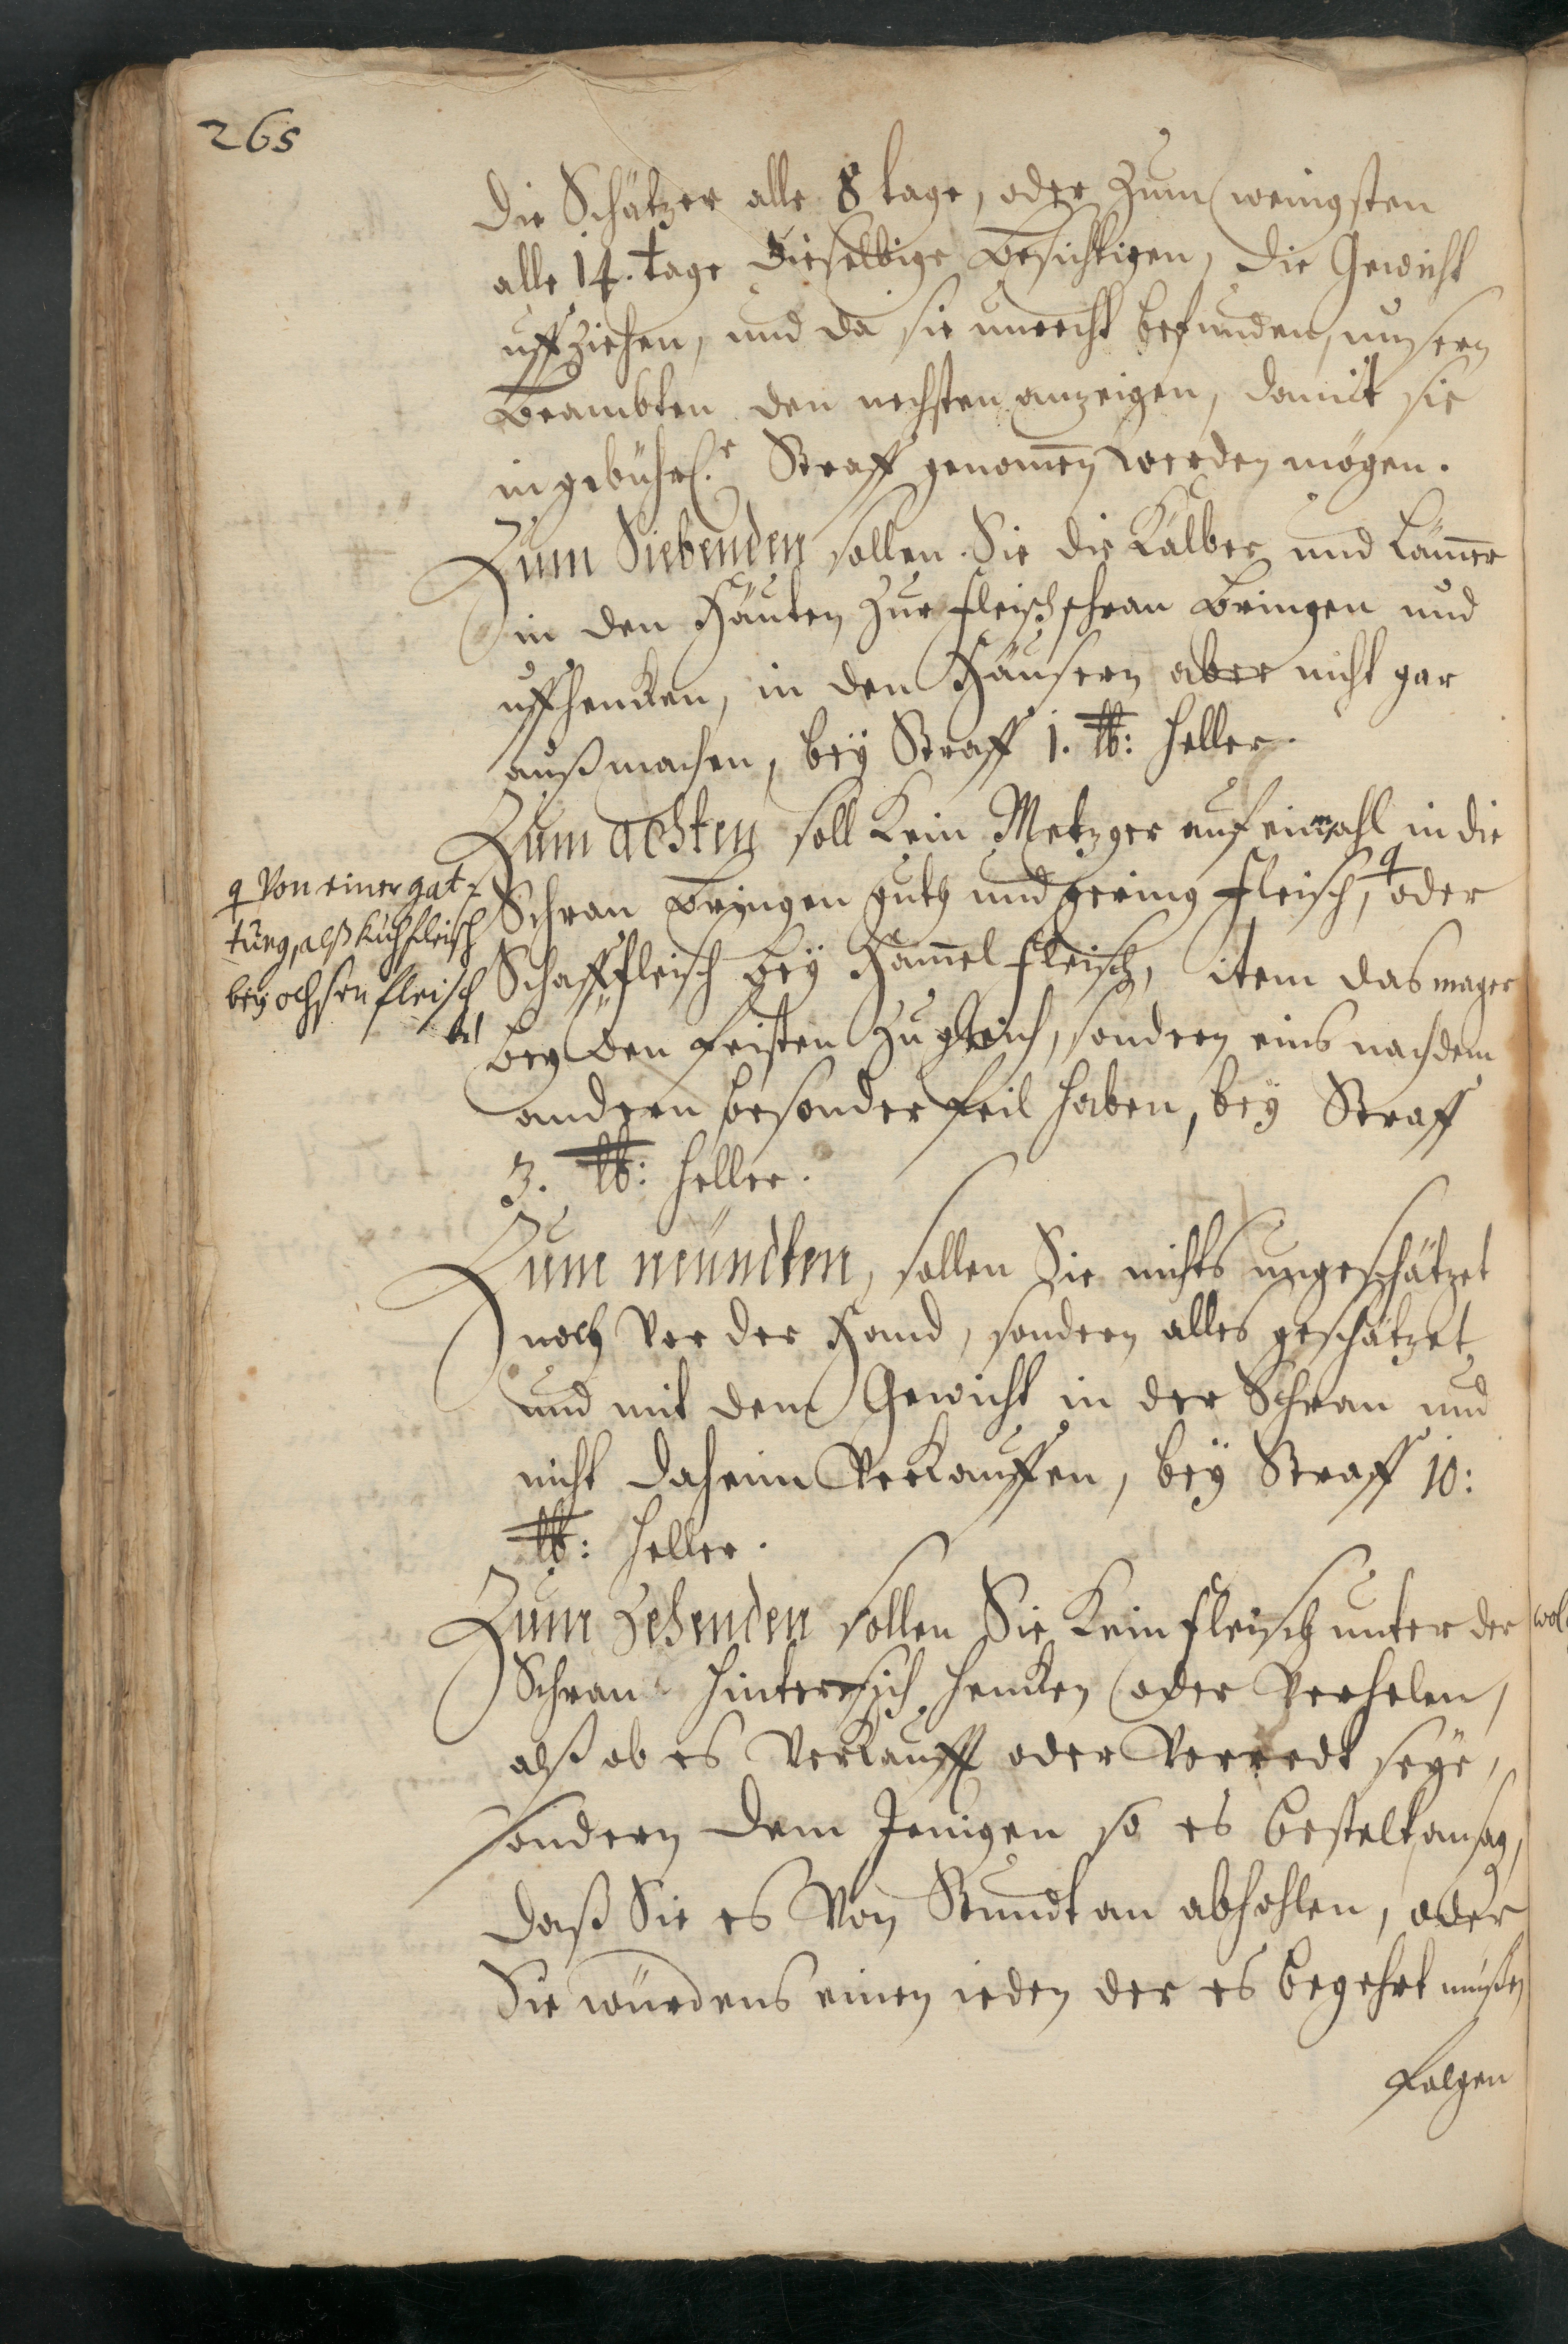 268
die Schätzer alle 8 tage, oder zum wenigsten
alle 14. tage dieselbige besichtigen, die Gewicht
uffziehen, und da sie unrecht befunden, unsern
Beambten den nechsten anzeigen, damit sie
in gebührl.r Straff genom̄en werden mögen.
Zum Siebenden sollen Sie die Kälber und Läm̄er
in den Häuten zur fleischschran bringen und
uffhencken, in den Häusern aber nicht gar
außmachen, bey Straff 1. lb: heller.
Zum achten soll kein Metzger auf einmahl in die
Schran bringen guth und gering fleisch, oder
Schafffleisch bey Ham̄el fleisch, item das mager
bey den feisten zugleich, sondern eins nach dem
andern besonder feil haben, bey Straff
3. lb: heller.
Von einer gat-
tung, alß kuhfleisch
bey ochsen fleisch
Zum neundten, sollen Sie nichts ungeschätzet
noch vor der Hand, sondern alles geschätzet
und mit dem Gewicht in der Schran und
nicht daheim verkauffen, bey Straff 10:
lb: heller.
Zum Zehenden sollen Sie kein fleisch unter der
Schran hintersich hencken oder verhelen,
alß ob es verkaufft oder verredt seye,
sondern dem Jenigen so es bestelt ansag,
daß Sie es von Stundt an abhohlen, oder
Sie würdens einen ieden der es begehrt müßen
folgen